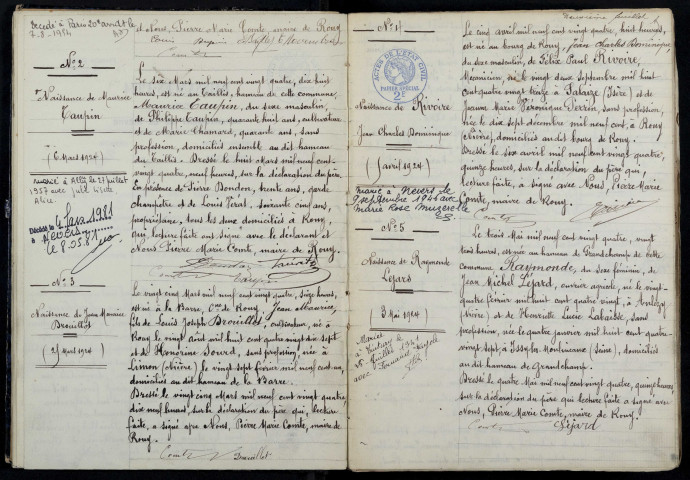 Décédé à Paris 20e arrdt le
7-8-1954
et Nous, Pierre Marie Comte, maire de Rouy
Nº 2
Naissance de Maurice
Taupin
(6 Mars 1924)
Marié à Alluy le 27 juillet
1957 avec
Alice.
Décédé le 4 Mars 1981
à NEVERS
le 8.05.81
Le six Mars mil neuf cent vingt quatre, dix huit
heures, est né au Taillis, hameau de cette commune
Maurice Taupin, du sexe masculin,
de Philippe Taupin, quarante huit ans, cultivateur
et de Marie Chamard, quarante ans, sans
profession, domiciliés ensemble au dit hameau
du Taillis. Dressé le huit Mars mil neuf cent
vingt quatre, neuf heures, sur la déclaration du père.
En présence de Pierre Bondon, trente ans, garde
champêtre et de Louis Vérat, soixante cinq ans,
propriétaire, tous les deux domiciliés à Rouy,
qui lecture faite ont signé avec le déclarant et
Nous Pierre Marie Comte, maire de Rouy.
Comte Taupin
Nº 3
Naissance de Jean Maurice
Brouillet
(25 Mars 1924)
Le vingt cinq Mars mil neuf cent vingt quatre, seize heures,
est né à la Barre, Cne de Rouy, Jean Maurice,
fils de Louis Joseph Brouillet, cultivateur, né à
Rouy le vingt août mil huit cent quatre vingt dix sept
et de Honorine Sourd, sans profession, née à
Limon (Nièvre) le vingt sept février mil neuf cent un,
domiciliés au dit hameau de la Barre.
Dressé le vingt cinq Mars mil neuf cent vingt quatre
dix neuf heures, sur la déclaration du père qui, lecture
faite, a signé avec Nous, Pierre Marie Comte, maire de
Rouy.
Comte Brouillet
deuxième feuillet
Nº 4
ACTES DE L'ÉTAT CIVIL
PAPIER SPÉCIAL
2F
Naissance de Rivoire
Jean Charles Dominique
(5 avril 1924)
Marié à Nevers le
septembre 1946 avec
Marie Rose
Le cinq avril mil neuf cent vingt quatre, huit heures,
est né au bourg de Rouy, Jean Charles Dominique,
du sexe masculin, de Félix Paul Rivoire,
Mécanicien, né le vingt deux septembre mil huit
cent quatre vingt treize à Salaize (Isère) et de
Jeanne Marie Véronique Perrin, sans profession,
née le dix sept décembre mil neuf cent, à Rouy
(Nièvre), domiciliés au dit bourg de Rouy.
Dressé le six avril mil neuf cent vingt quatre,
quinze heures, sur la déclaration du père qui
lecture faite, a signé avec Nous, Pierre Marie
Comte, maire de Rouy.
Comte Rivoire
Nº 5
Naissance de Raymonde
Lejard
(3 Mai 1924)
Mariée
juillet 194
avec
Le trois Mai mil neuf cent vingt quatre, vingt
trois heures, est née au hameau de Grandchamp de cette
commune Raymonde, du sexe féminin, de
Jean Michel Lejard, ouvrier agricole, né le vingt
quatre février mil huit cent quatre vingt, à Anlezy
(Nièvre) et de Henriette Lucie Labaisse, sans
profession, née le quatre janvier mil huit cent quatre
vingt sept, à Issy-les-Moulineaux (Seine), domiciliés
au dit hameau de Grandchamp.
Dressé le quatre Mai mil neuf cent vingt quatre, quinze heures
sur la déclaration du père qui lecture faite a signé avec
Nous, Pierre Marie Comte, maire de Rouy.
Comte Lejard